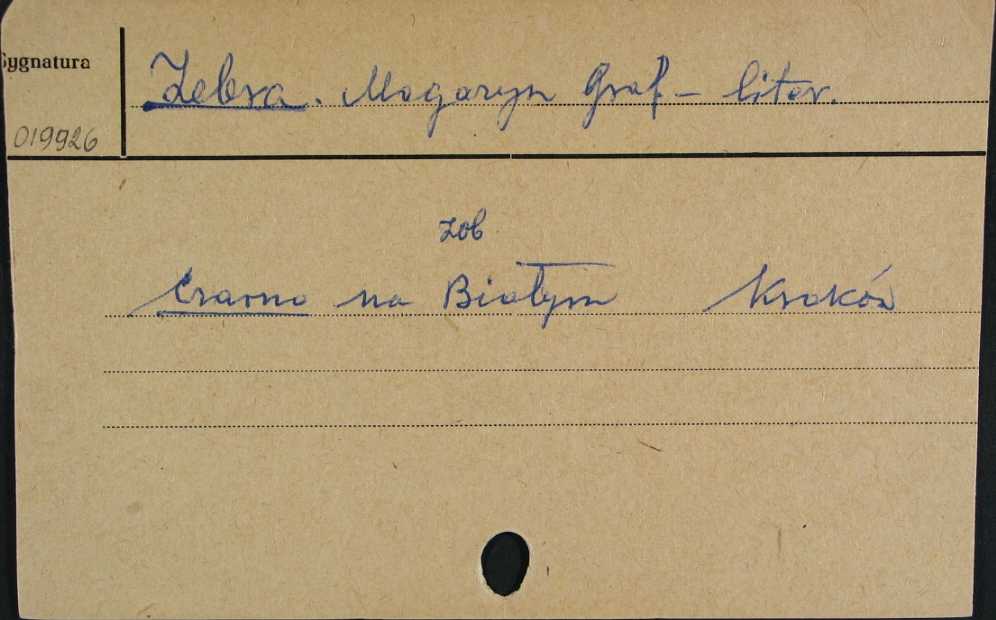 Sygnatura
Zebra. Magazyn Graf – liter.
019926
zob
Czarno na Białym Kraków